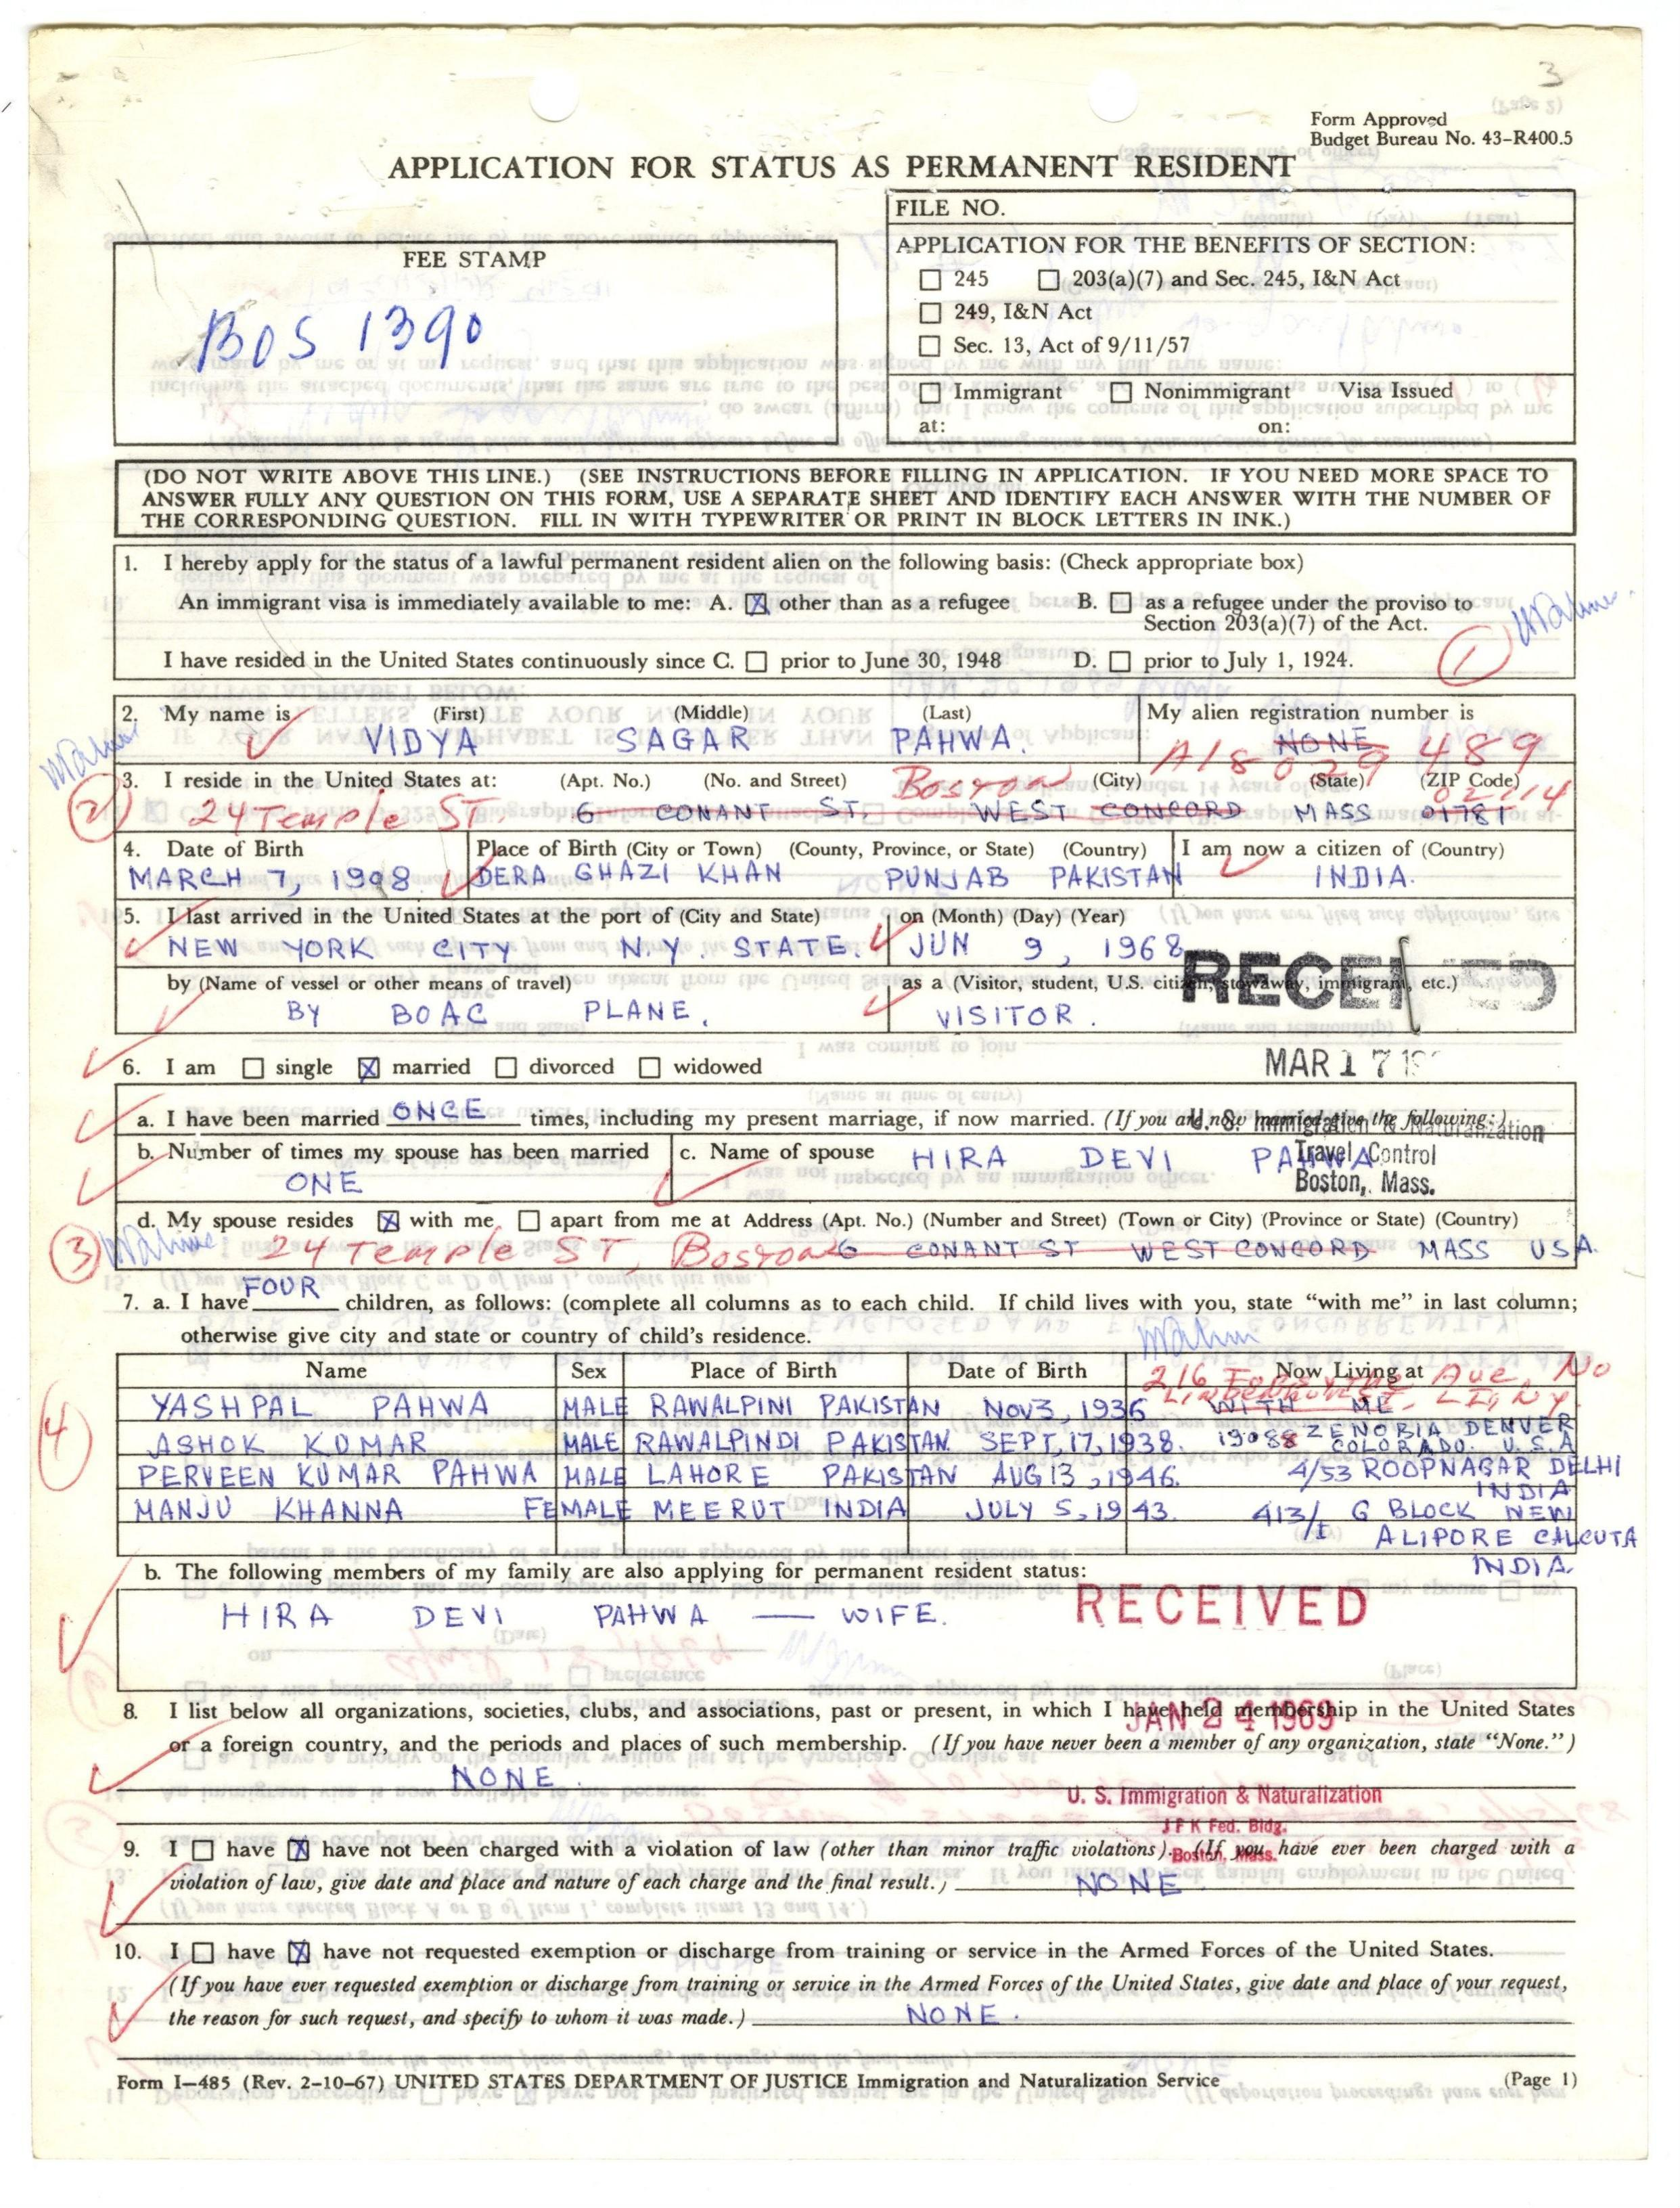 3
Form Approved
Budget Bureau No. 43-R400.5
APPLICATION FOR STATUS AS PERMANENT RESIDENT
FEE STAMP
BOS 1390
FILE NO.
APPLICATION FOR THE BENEFITS OF SECTION:
☐ 245 ☐ 203(a)(7) and Sec. 245, I&N Act
☐ 249, I&N Act
☐ Sec. 13, Act of 9/11/57
☐ Immigrant ☐ Nonimmigrant Visa Issued
at: on:
(DO NOT WRITE ABOVE THIS LINE.) (SEE INSTRUCTIONS BEFORE FILLING IN APPLICATION. IF YOU NEED MORE SPACE TO
ANSWER FULLY ANY QUESTION ON THIS FORM, USE A SEPARATE SHEET AND IDENTIFY EACH ANSWER WITH THE NUMBER OF
THE CORRESPONDING QUESTION. FILL IN WITH TYPEWRITER OR PRINT IN BLOCK LETTERS IN INK.)
1. I hereby apply for the status of a lawful permanent resident alien on the following basis: (Check appropriate box)
An immigrant visa is immediately available to me: A. ☒ other than as a refugee B. ☐ as a refugee under the proviso to
Section 203(a)(7) of the Act.
I have resided in the United States continuously since C. ☐ prior to June 30, 1948 D. ☐ prior to July 1, 1924.
1
2. My name is (First) (Middle) (Last) My alien registration number is
VIDYA SAGAR PAHWA. NONE
A18 029 489
3. I reside in the United States at: (Apt. No.) (No. and Street) Boston (City) (State) (ZIP Code)
2 24 Temple ST. 6 CONANT ST. WEST CONCORD MASS 01781 02114
4. Date of Birth Place of Birth (City or Town) (County, Province, or State) (Country) I am now a citizen of (Country)
MARCH 7, 1908. DERA GHAZI KHAN PUNJAB PAKISTAN INDIA.
5. I last arrived in the United States at the port of (City and State) on (Month) (Day) (Year)
NEW YORK CITY N.Y. STATE. JUN 9, 1968
RECEIVED
by (Name of vessel or other means of travel) as a (Visitor, student, U.S. citizen, stowaway, immigrant, etc.)
BY BOAC PLANE. VISITOR.
6. I am ☐ single ☒ married ☐ divorced ☐ widowed
MAR 17 19
a. I have been married ONCE times, including my present marriage, if now married. (If you are now married give the following:)
U. S. Immigration & Naturalization
Travel Control
Boston, Mass.
b. Number of times my spouse has been married c. Name of spouse HIRA DEVI PAHWA
ONE
d. My spouse resides ☒ with me ☐ apart from me at Address (Apt. No.) (Number and Street) (Town or City) (Province or State) (Country)
3 24 Temple ST, Boston 6 CONANT ST WEST CONCORD MASS USA.
7. a. I have FOUR children, as follows: (complete all columns as to each child. If child lives with you, state "with me" in last column;
otherwise give city and state or country of child's residence.
Name Sex Place of Birth Date of Birth Now Living at
216 Ave, No
4
YASHPAL PAHWA MALE RAWALPINI PAKISTAN NOV 3, 1936 WITH ME
ASHOK KUMAR MALE RAWALPINDI PAKISTAN. SEPT, 17, 1938. 19088 ZENOBIA DENVER
COLORADO. U.S.A
PERVEEN KUMAR PAHWA MALE LAHORE PAKISTAN AUG 13, 1946. 4/53 ROOPNAGAR DELHI
INDIA
MANJU KHANNA FEMALE MEERUT INDIA JULY 5, 1943. 413/1 G BLOCK NEW
ALIPORE CALCUTA
INDIA.
b. The following members of my family are also applying for permanent resident status:
HIRA DEVI PAHWA — WIFE.
RECEIVED
8. I list below all organizations, societies, clubs, and associations, past or present, in which I have held membership in the United States
JAN 24 1969
or a foreign country, and the periods and places of such membership. (If you have never been a member of any organization, state "None.")
NONE.
U. S. Immigration & Naturalization
JFK Fed. Bldg.
Boston, Mass.
9. I ☐ have ☒ have not been charged with a violation of law (other than minor traffic violations). (If you have ever been charged with a
violation of law, give date and place and nature of each charge and the final result.) NONE.
10. I ☐ have ☒ have not requested exemption or discharge from training or service in the Armed Forces of the United States.
(If you have ever requested exemption or discharge from training or service in the Armed Forces of the United States, give date and place of your request,
the reason for such request, and specify to whom it was made.) NONE.
Form I-485 (Rev. 2-10-67) UNITED STATES DEPARTMENT OF JUSTICE Immigration and Naturalization Service (Page 1)